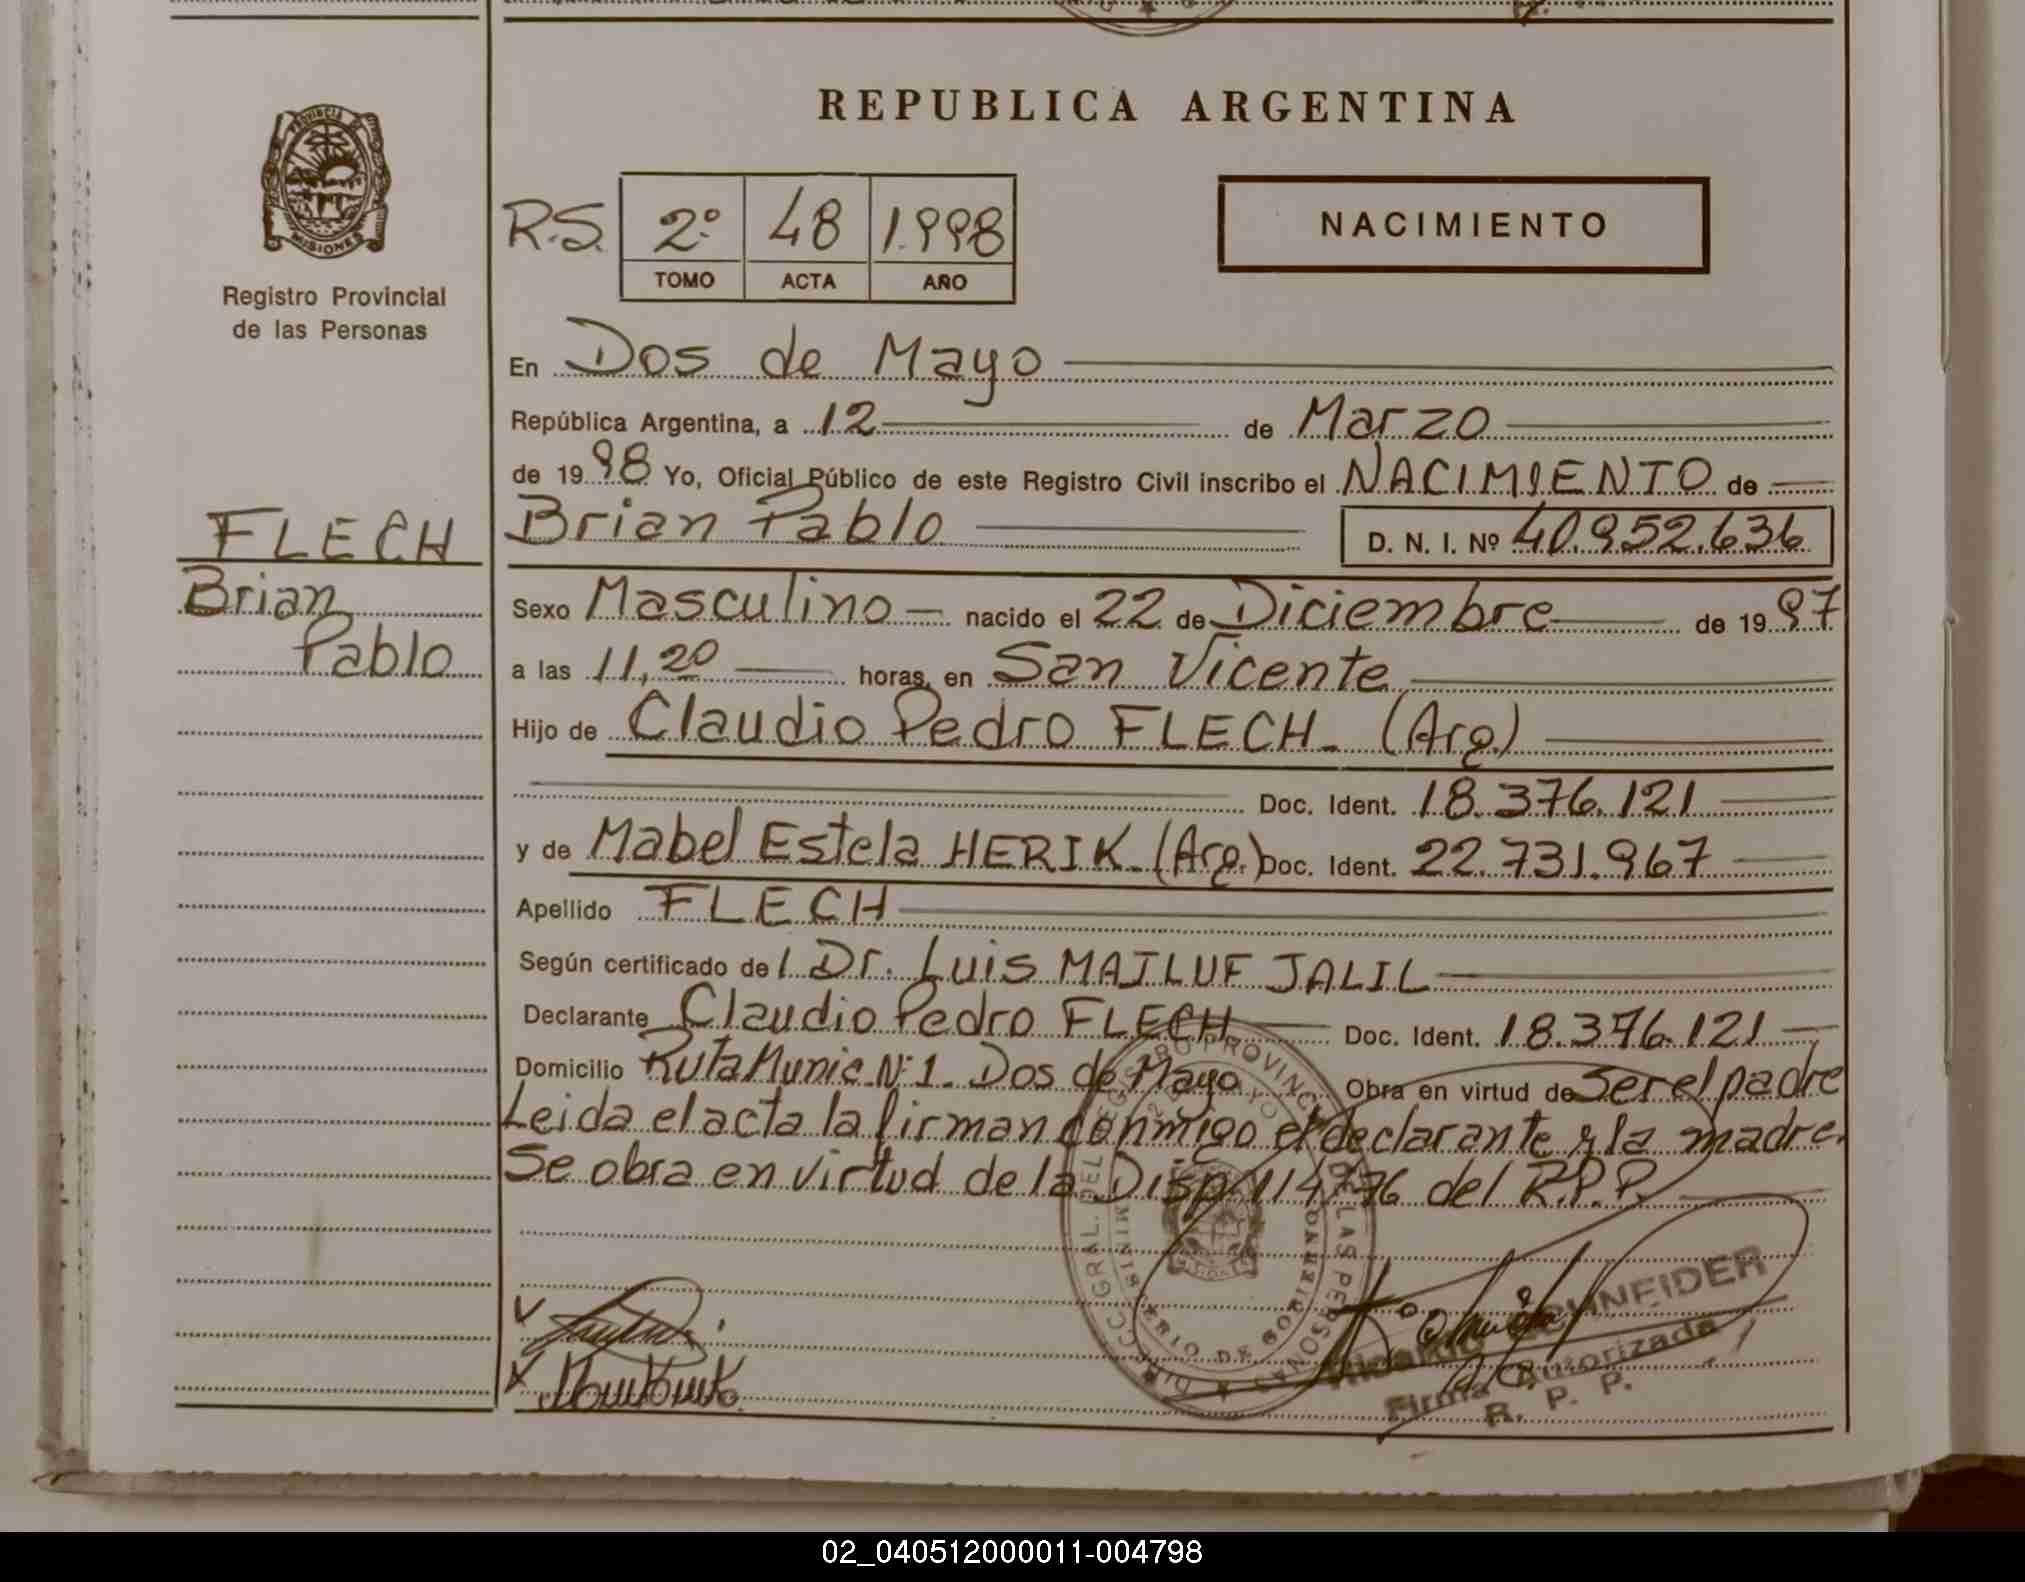 REPUBLICA ARGENTINA
PROVINCIA DE
MISIONES
Registro Provincial
de las Personas
R.S. 2º 48 1.998
TOMO ACTA AÑO
NACIMIENTO
En Dos de Mayo
República Argentina, a 12 de Marzo
de 1998 Yo, Oficial Público de este Registro Civil inscribo el NACIMIENTO de
FLECH
Brian
Pablo
Brian Pablo D. N. I. Nº 40.952.636
Sexo Masculino nacido el 22 de Diciembre de 1997
a las 11,20 horas, en San Vicente
Hijo de Claudio Pedro FLECH. (Arg.)
Doc. Ident. 18.376.121
y de Mabel Estela HERIK. (Arg.) Doc. Ident. 22.731.967
Apellido FLECH
Según certificado del Dr. Luis MAILUF JALIL
Declarante Claudio Pedro FLECH Doc. Ident. 18.376.121
Domicilio Ruta Munic. Nº 1. Dos de Mayo Obra en virtud de Ser el padre
Leida el acta la firman conmigo el declarante y la madre.
Se obra en virtud de la Disp. 114/76 del R.P.P.
SCHNEIDER
Firma Autorizada
R. P. P.
02_040512000011-004798